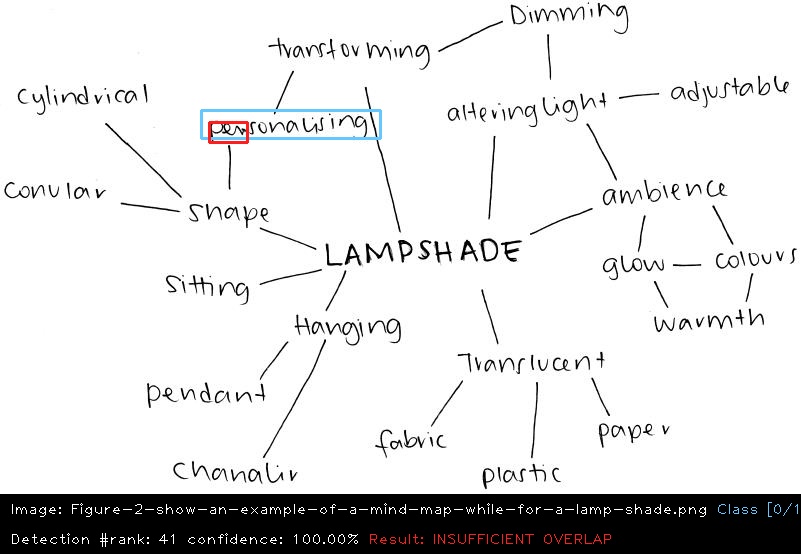 Dimming
transforming
cylindrical
adjustable
altering light
personalising
conular
shape
ambience
LAMPSHADE
glow
colours
sitting
Hanging
warmth
Translucent
pendant
fabric
paper
chanalir
plastic
Image: Figure-2-show-an-example-of-a-mind-map-while-for-a-lamp-shade.png Class [0/1
Detection #rank: 41 confidence: 100.00% Result: INSUFFICIENT OVERLAP